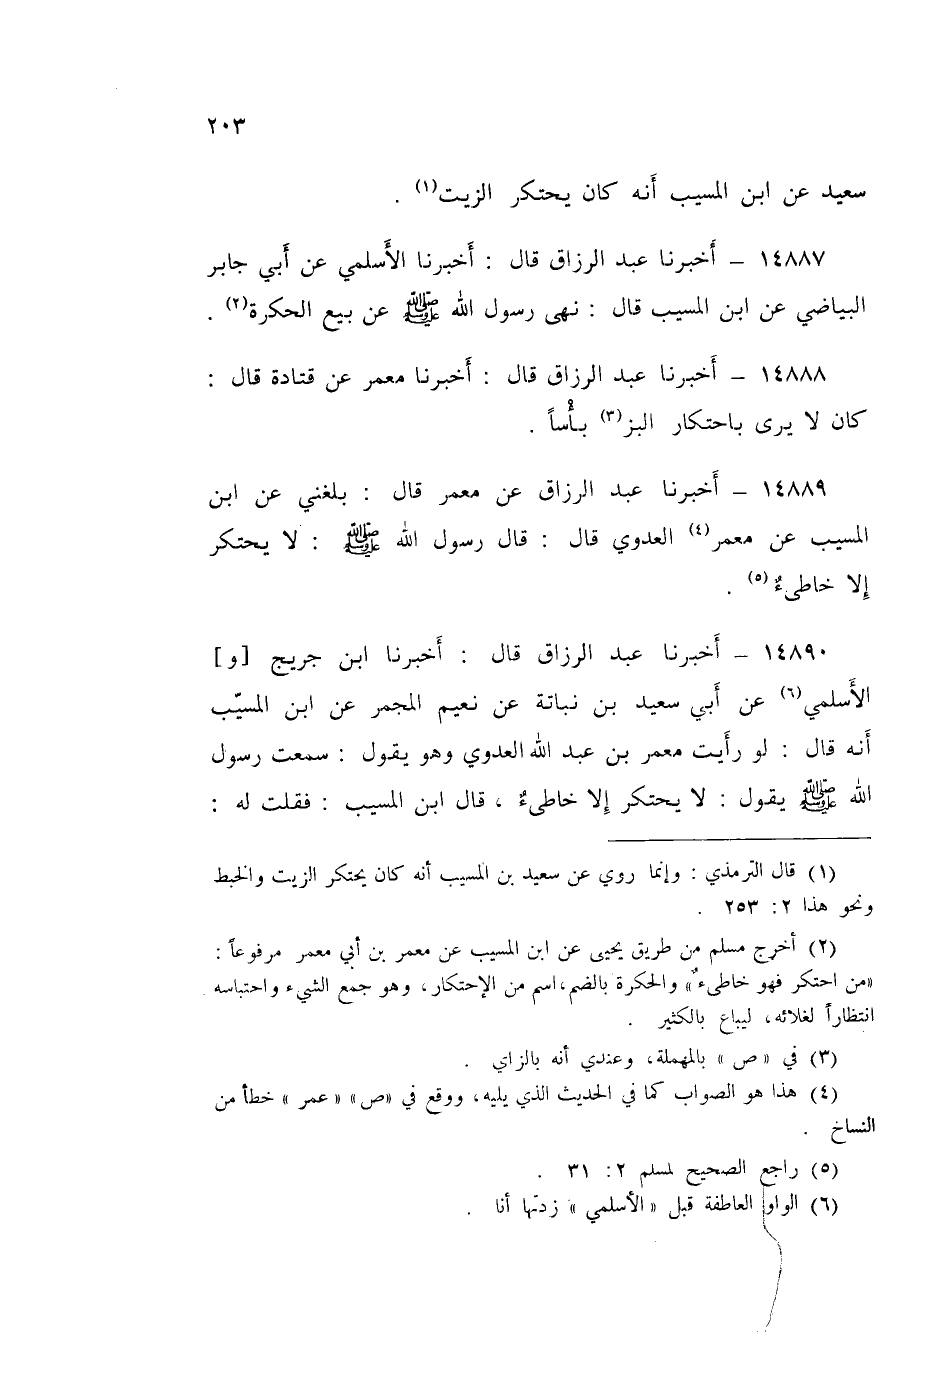 ٢٠٣
سعيد عن ابن المسيب أنه كان يحتكر الزيت(١) .
١٤٨٨٧ – أخبرنا عبد الرزاق قال : أخبرنا الأسلمي عن أبي جابر
البياضي عن ابن المسيب قال : نهى رسول الله ﷺ عن بيع الحكرة(٢) .
١٤٨٨٨ – أخبرنا عبد الرزاق قال : أخبرنا معمر عن قتادة قال :
كان لا يرى باحتكار البز(٣) بأساً .
١٤٨٨٩ – أخبرنا عبد الرزاق عن معمر قال : بلغني عن ابن
المسيب عن معمر(٤) العدوي قال : قال رسول الله ﷺ : لا يحتكر
إلا خاطىءٌ(٥) .
١٤٨٩٠ – أخبرنا عبد الرزاق قال : أخبرنا ابن جريج [و]
الأسلمي(٦) عن أبي سعيد بن نباتة عن نعيم المجمر عن ابن المسيّب
أنه قال : لو رأيت معمر بن عبد الله العدوي وهو يقول : سمعت رسول
الله ﷺ يقول : لا يحتكر إلا خاطىءٌ ، قال ابن المسيب : فقلت له :
(١) قال الترمذي : وإنما روي عن سعيد بن المسيب أنه كان يحتكر الزيت والخبط
ونحو هذا ٢: ٢٥٣ .
(٢) أخرج مسلم من طريق يحيى عن ابن المسيب عن معمر بن أبي معمر مرفوعاً :
«من احتكر فهو خاطىءٌ» والحكرة بالضم، اسم من الإحتكار، وهو جمع الشيء واحتباسه
انتظاراً لغلائه، ليباع بالكثير .
(٣) في «ص» بالمهملة، وعندي أنه بالزاي .
(٤) هذا هو الصواب كما في الحديث الذي يليه، ووقع في «ص» «عمر» خطأ من
النساخ .
(٥) راجع الصحيح لمسلم ٢: ٣١ .
(٦) الواو العاطفة قبل «الأسلمي» زدتها أنا .